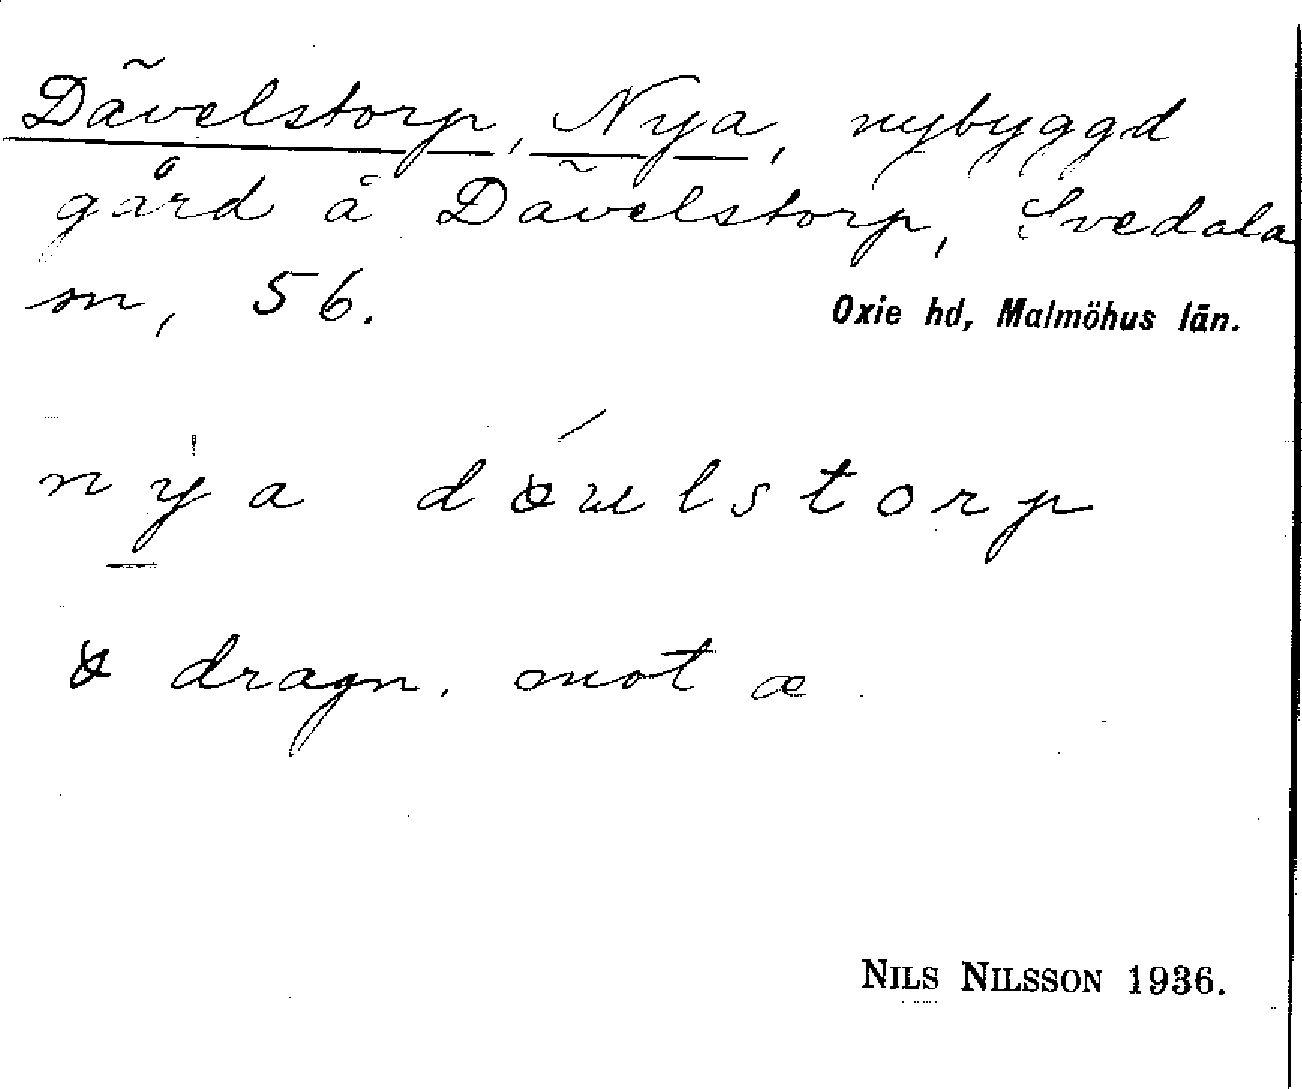 Dävelstorp, Nya, nybyggd
gård å Dävelstorp, Svedala
sn, 56.
Oxie hd, Malmöhus län.
nya dáulstorp
dragn. mot æ
NILS NILSSON 1936.